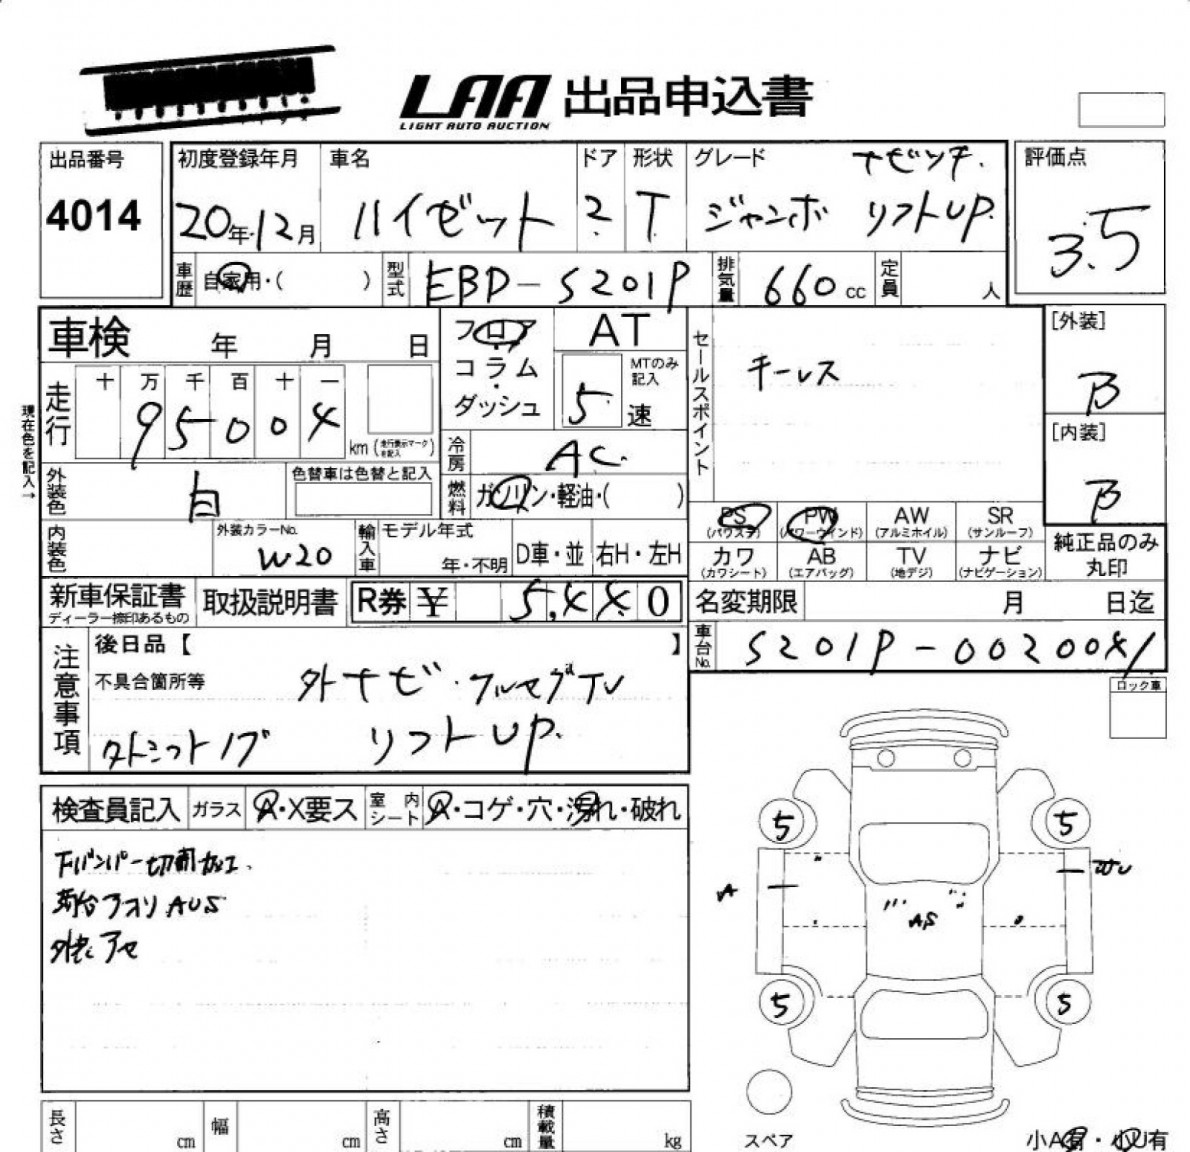 LAA 出品申込書
LIGHT AUTO AUCTION
出品番号
4014
初度登録年月
20年12月
車名
ハイゼット
ドア
2
形状
T
グレード
ナビッチ.
ジャンボ リフトUP.
評価点
3.5
車歴
自家用・( )
型式
EBD-S201P
排気量
660 cc
定員
人
車検 年 月 日
フロア・コラム・ダッシュ
AT
MTのみ記入
5速
セールスポイント
キーレス
[外装]
B
[内装]
B
現在色を記入→
走行
十 万 千 百 十 一
95004
km (走行表示マークを記入)
冷房
AC
燃料
ガソリン・軽油・( )
外装色
白
色替車は色替と記入
PS (パワステ)
PW (パワーウィンド)
AW (アルミホイル)
SR (サンルーフ)
カワ (カワシート)
AB (エアバッグ)
TV (地デジ)
ナビ (ナビゲーション)
純正品のみ丸印
内装色
外装カラーNo.
W20
輸入車
モデル年式
年・不明
D車・並
右H・左H
新車保証書
ディーラー捺印あるもの
取扱説明書
R券 ¥ 5,440
名変期限 月 日迄
車台No.
S201P-0020041
注意事項
後日品【 】
不具合箇所等
外ナビ・フルセグTV
リフトUP.
ロック車
検査員記入
ガラス
A・X要ス
室内シート
A・コゲ・穴・汚れ・破れ
下バンパー切削加工.
荷台アオリAUS
5
5
A
AS
5
5
スペア
小A有・小U有
長さ cm
幅 cm
高さ cm
積載量 kg